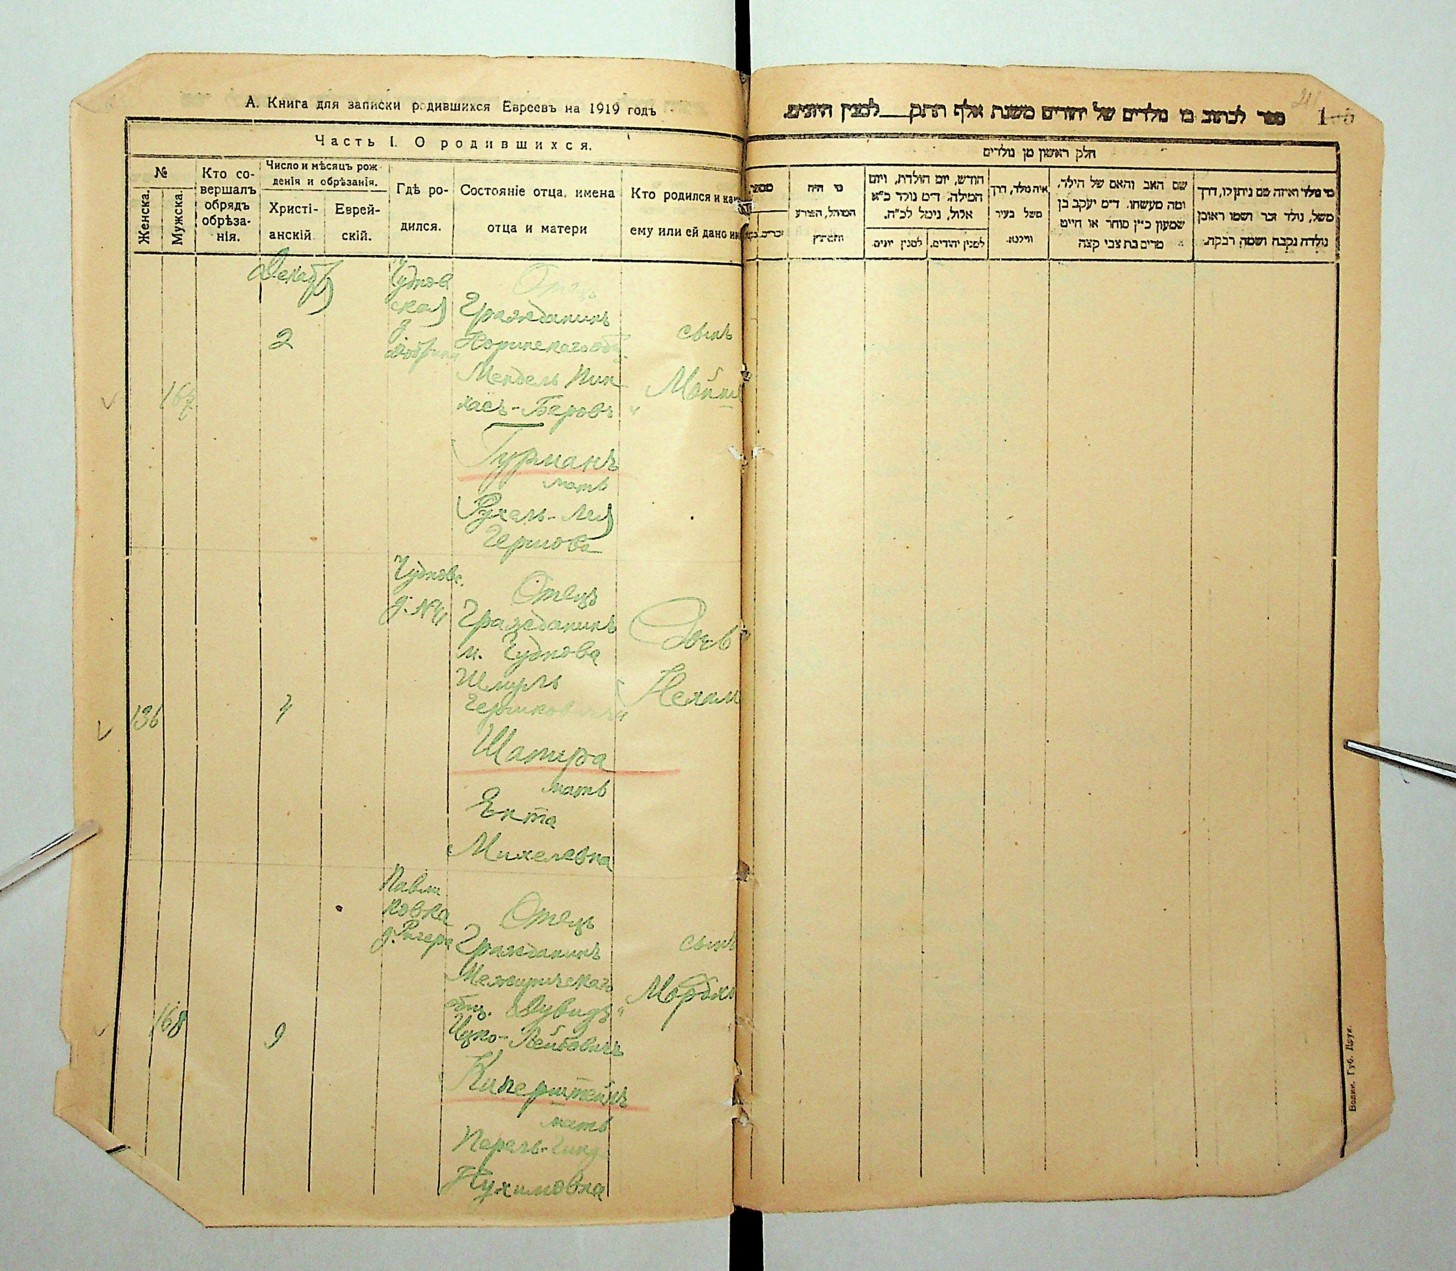 А. Книга для записки родившихся Евреевъ на 1919 годъ
Часть I. О родившихся.
№
Женска.
Мужска.
Кто со-
вершалъ
обрядъ
обрѣза-
нія.
Число и мѣсяцъ рож-
денія и обрѣзанія.
Христі-
анскій.
Еврей-
скій.
Гдѣ ро-
дился.
Состояніе отца, имена
отца и матери
Кто родился и как
ему или ей дано им
Декабря
2
Чуднов
ская
д.
Отецъ
Гражданинъ
Норинскаго общ.
Мендель Пин
касъ-Беровъ
Гурманъ
мать
Рухель-Лея
Гершова
сынъ
Мойш
136
4
Чудновс.
Отецъ
Гражданинъ
м. Чуднова
Шмуль
Шапира
мать
Ента
Михелевна
Дочь
Нехам
168
9
Павли
ковка
Отецъ
Гражданинъ
Межиричскаго
общ. Дувидъ
Ицко-Лейбовичъ
Киперштейнъ
мать
Нухимовна
сынъ
Мордко
ספר לכתוב בו נולדים של יהודים משנת אלף תתק__למנין היונים.
חלק ראשון מן נולדים
מי היה
המוהל, הפורע
והמוצץ
חודש, יום הולדת, ויום
המילה: ד״מ נולד כ״א
אלול, נימל לכ״ח.
למנין יונים.
למנין יהודים.
איה נולד, דרך
משל בעיר
ווילנא.
שם האב והאם של הילד,
ומה מעשהו. ד״מ יעקב בן
שמעון כ״ץ סוחר או חייט
מרים בת צבי קצה
מי נולד ואיזה שם ניתן לו, דרך
משל, נולד זכר ושמו ראובן
נולדה נקבה ושמה רבקה.
Волин. Губ. Друк.